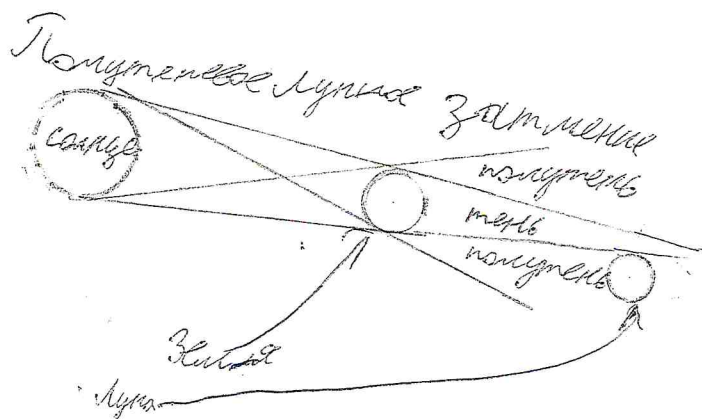 Полутеневое лунное затмение
солнце
полутень
тень
полутень
Земля
Луна